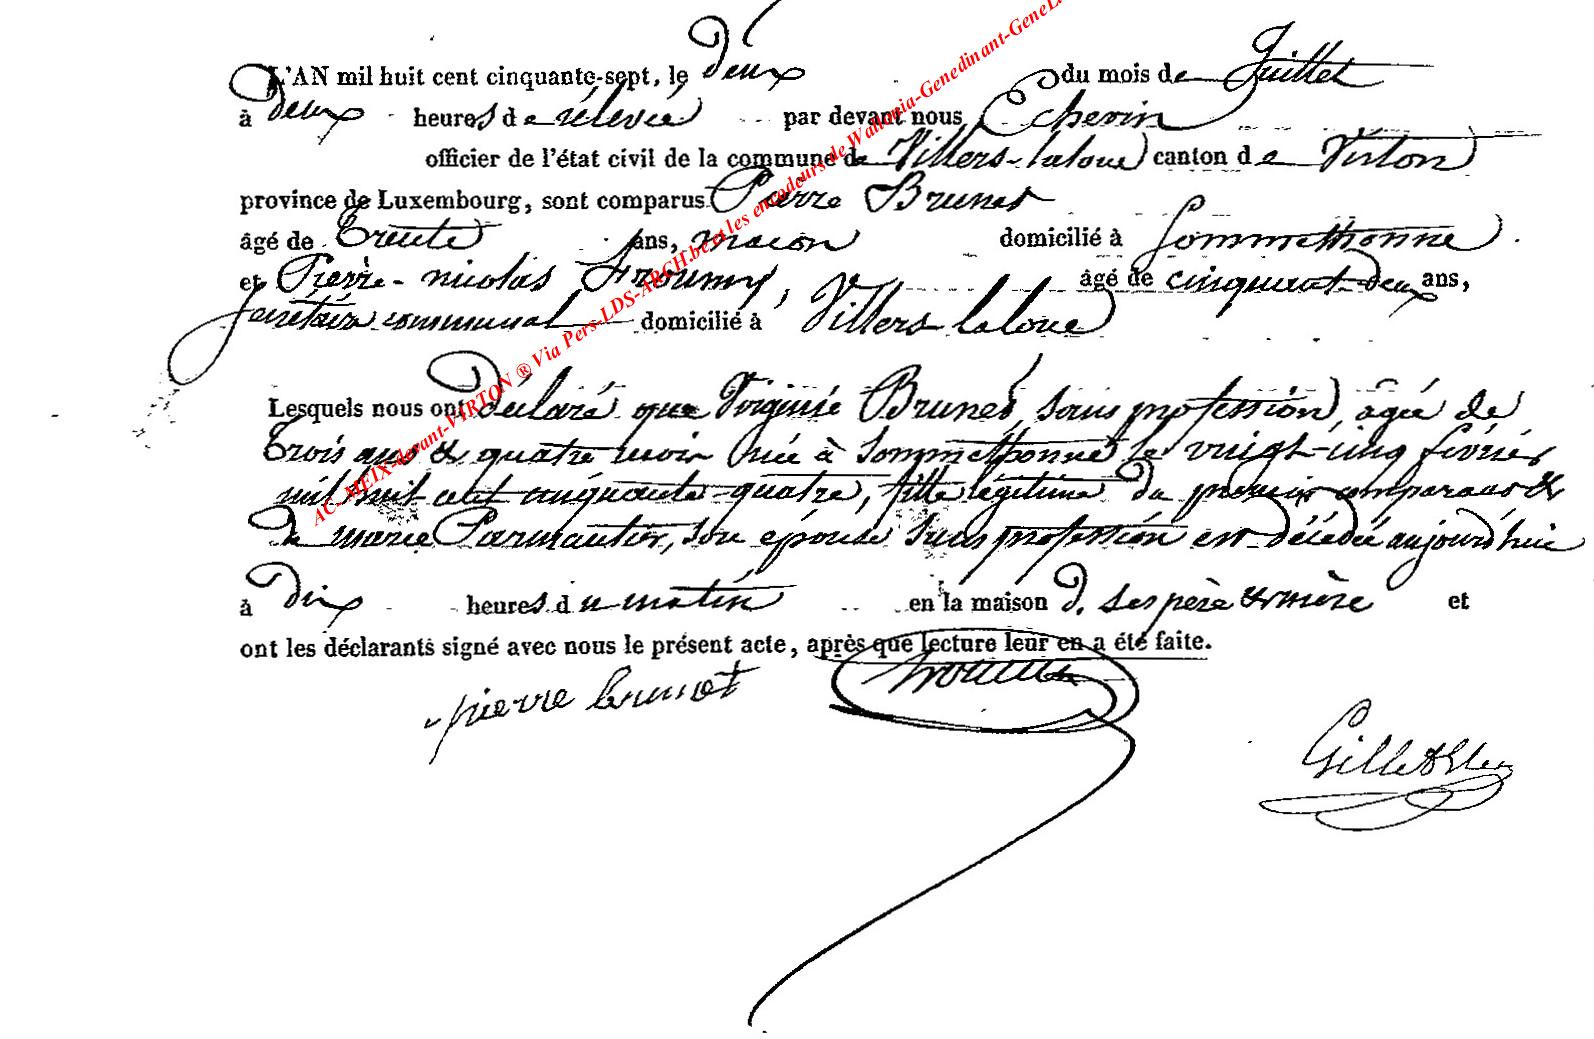 L'AN mil huit cent cinquante-sept, le deux du mois de Juillet
à deux heures de rélevée par devant nous Echevin
officier de l'état civil de la commune de Villers-laloue canton de Virton
province de Luxembourg, sont comparus Pierre Brunet
âgé de Trente ans, macon domicilié à Sommethonne
et Pierre-nicolas âgé de cinquant-deux ans,
Secrétaire communal domicilié à Villers-laloue
Lesquels nous ont Déclaré que Virginie Brunet, sans profession, âgée de
Trois ans & quatre mois née à Sommethonne le vingt-cinq février
mil huit cent cinquante-quatre, fille légitime du premier comparant &
de marie Parmantier, son épouse sans profession est décédée aujourd'hui
à dix heures du matin en la maison de ses père & mère et
ont les déclarants signé avec nous le présent acte, après que lecture leur en a été faite.
pierre brunet
AC-MEIX-devant-VIRTON ® Via Pers-LDS-ARCH.be et les encodeurs de Wallonia-Genedinant-GeneL